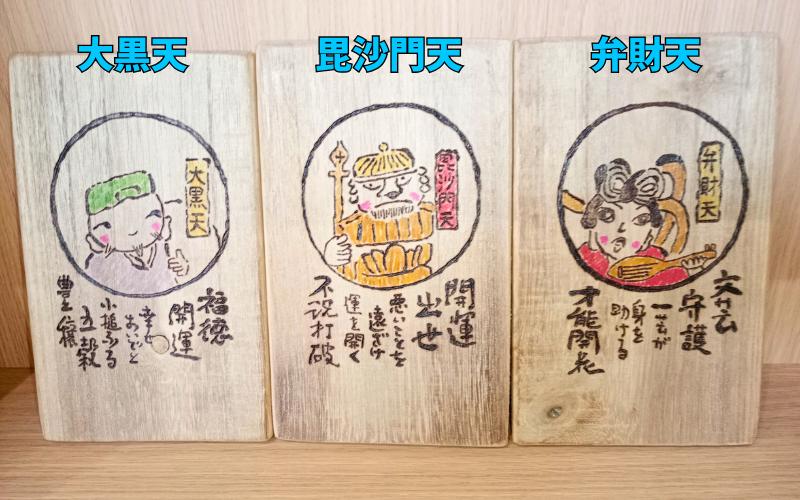 大黒天
毘沙門天
弁財天
大黒天
福徳
開運
幸せ
おいでと
小槌ふる
五穀
豊穣
毘沙門天
開運
出世
悪いことを
遠ざけ
運を開く
不況打破
弁財天
文芸
守護
一芸が
身を
助ける
才能開花